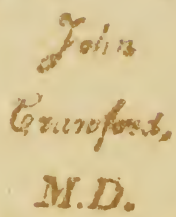 John
Crawford,
M.D.